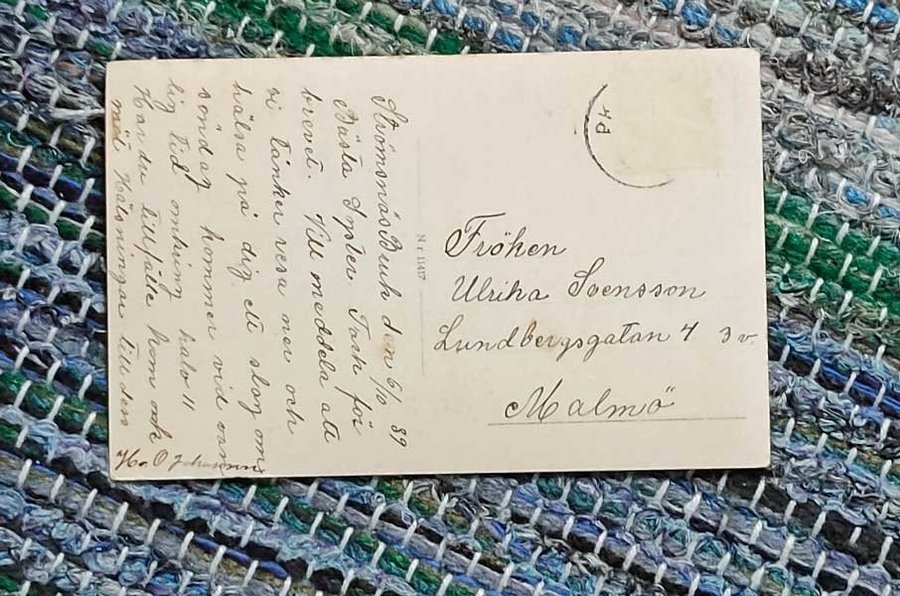 Strömsnäs Bruk den 6/10 39
Bästa Syster. Tack för
brevet. Vill meddela att
vi tänker resa ner och
hälsa på dig ett slag om
söndag kommer vid van
lig tid omkring halv 11
Har du tillfälle kom och
möt Hälsningar till den
H. o O Johansson
Nr 11417
Fröken
Ulrika Svensson
Lundbergsgatan 4 3 v
Malmö